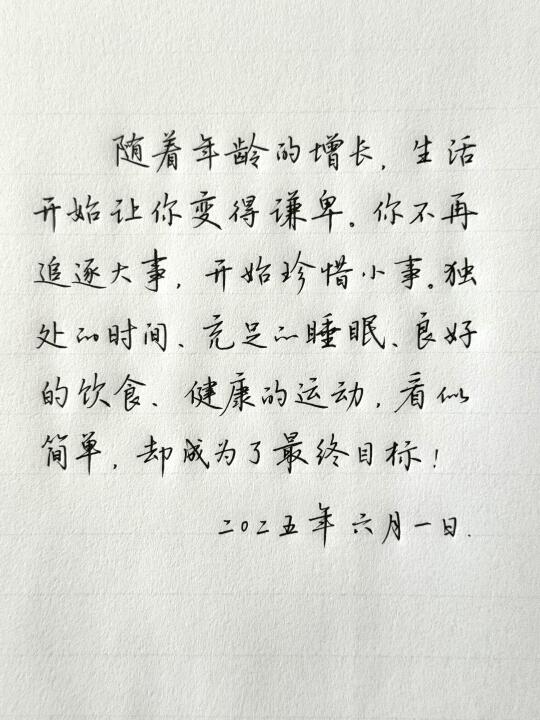 随着年龄的增长，生活
开始让你变得谦卑。你不再
追逐大事，开始珍惜小事。独
处的时间、充足的睡眠、良好
的饮食、健康的运动，看似
简单，却成为了最终目标！
二〇二五年六月一日.